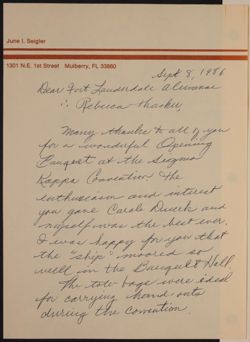 June I. Seigler
1301 N.E. 1st Street Mulberry, FL 33860
Sept 8, 1986
Dear Fort Lauderdale Alumnae
Rebecca
Many thanks to all of you
for a wonderful Opening
Banquet at the Sigma
Kappa Convention. The
enthusiasm and interest
you gave Carole and
myself was the best ever.
I was happy for you that
the "ship" moored so
well in the Banquet Hall.
The tote bags were ideal
for carrying hand outs
during the Convention.